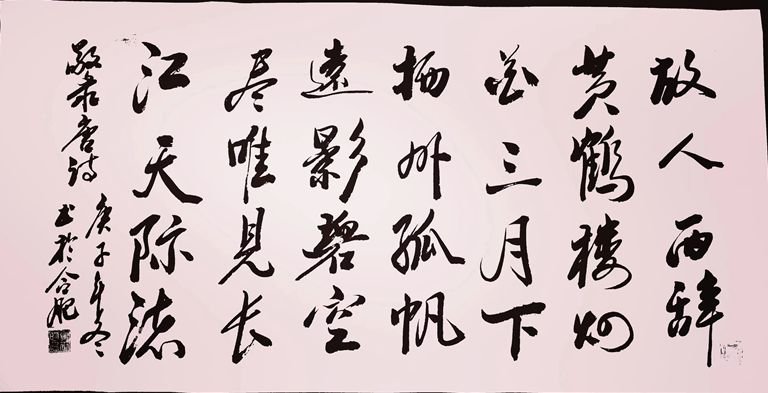 故人西辞
黄鹤楼烟
花三月下
扬州孤帆
遠影碧空
尽唯見长
江天际流
敬录唐诗
庚子年冬
书於合肥